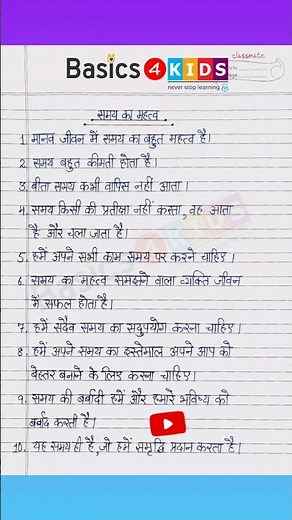 classmate
Basics 4 KIDS
never stop learning
समय का महत्व
1. मानव जीवन में समय का बहुत महत्व है।
2. समय बहुत कीमती होता है।
3. बीता समय कभी वापिस नहीं आता।
4. समय किसी की प्रतीक्षा नहीं करता, वह आता
है और चला जाता है।
5. हमें अपने सभी काम समय पर करने चाहिए।
6. समय का महत्व समझने वाला व्यक्ति जीवन
में सफल होता है।
7. हमें सदैव समय का सदुपयोग करना चाहिए।
8. हमें अपने समय का इस्तेमाल अपने आप को
बेहतर बनाने के लिए करना चाहिए।
9. समय की बर्बादी हमें और हमारे भविष्य को
बर्बाद करती है।
10. यह समय ही है, जो हमें समृद्धि प्रदान करता है।